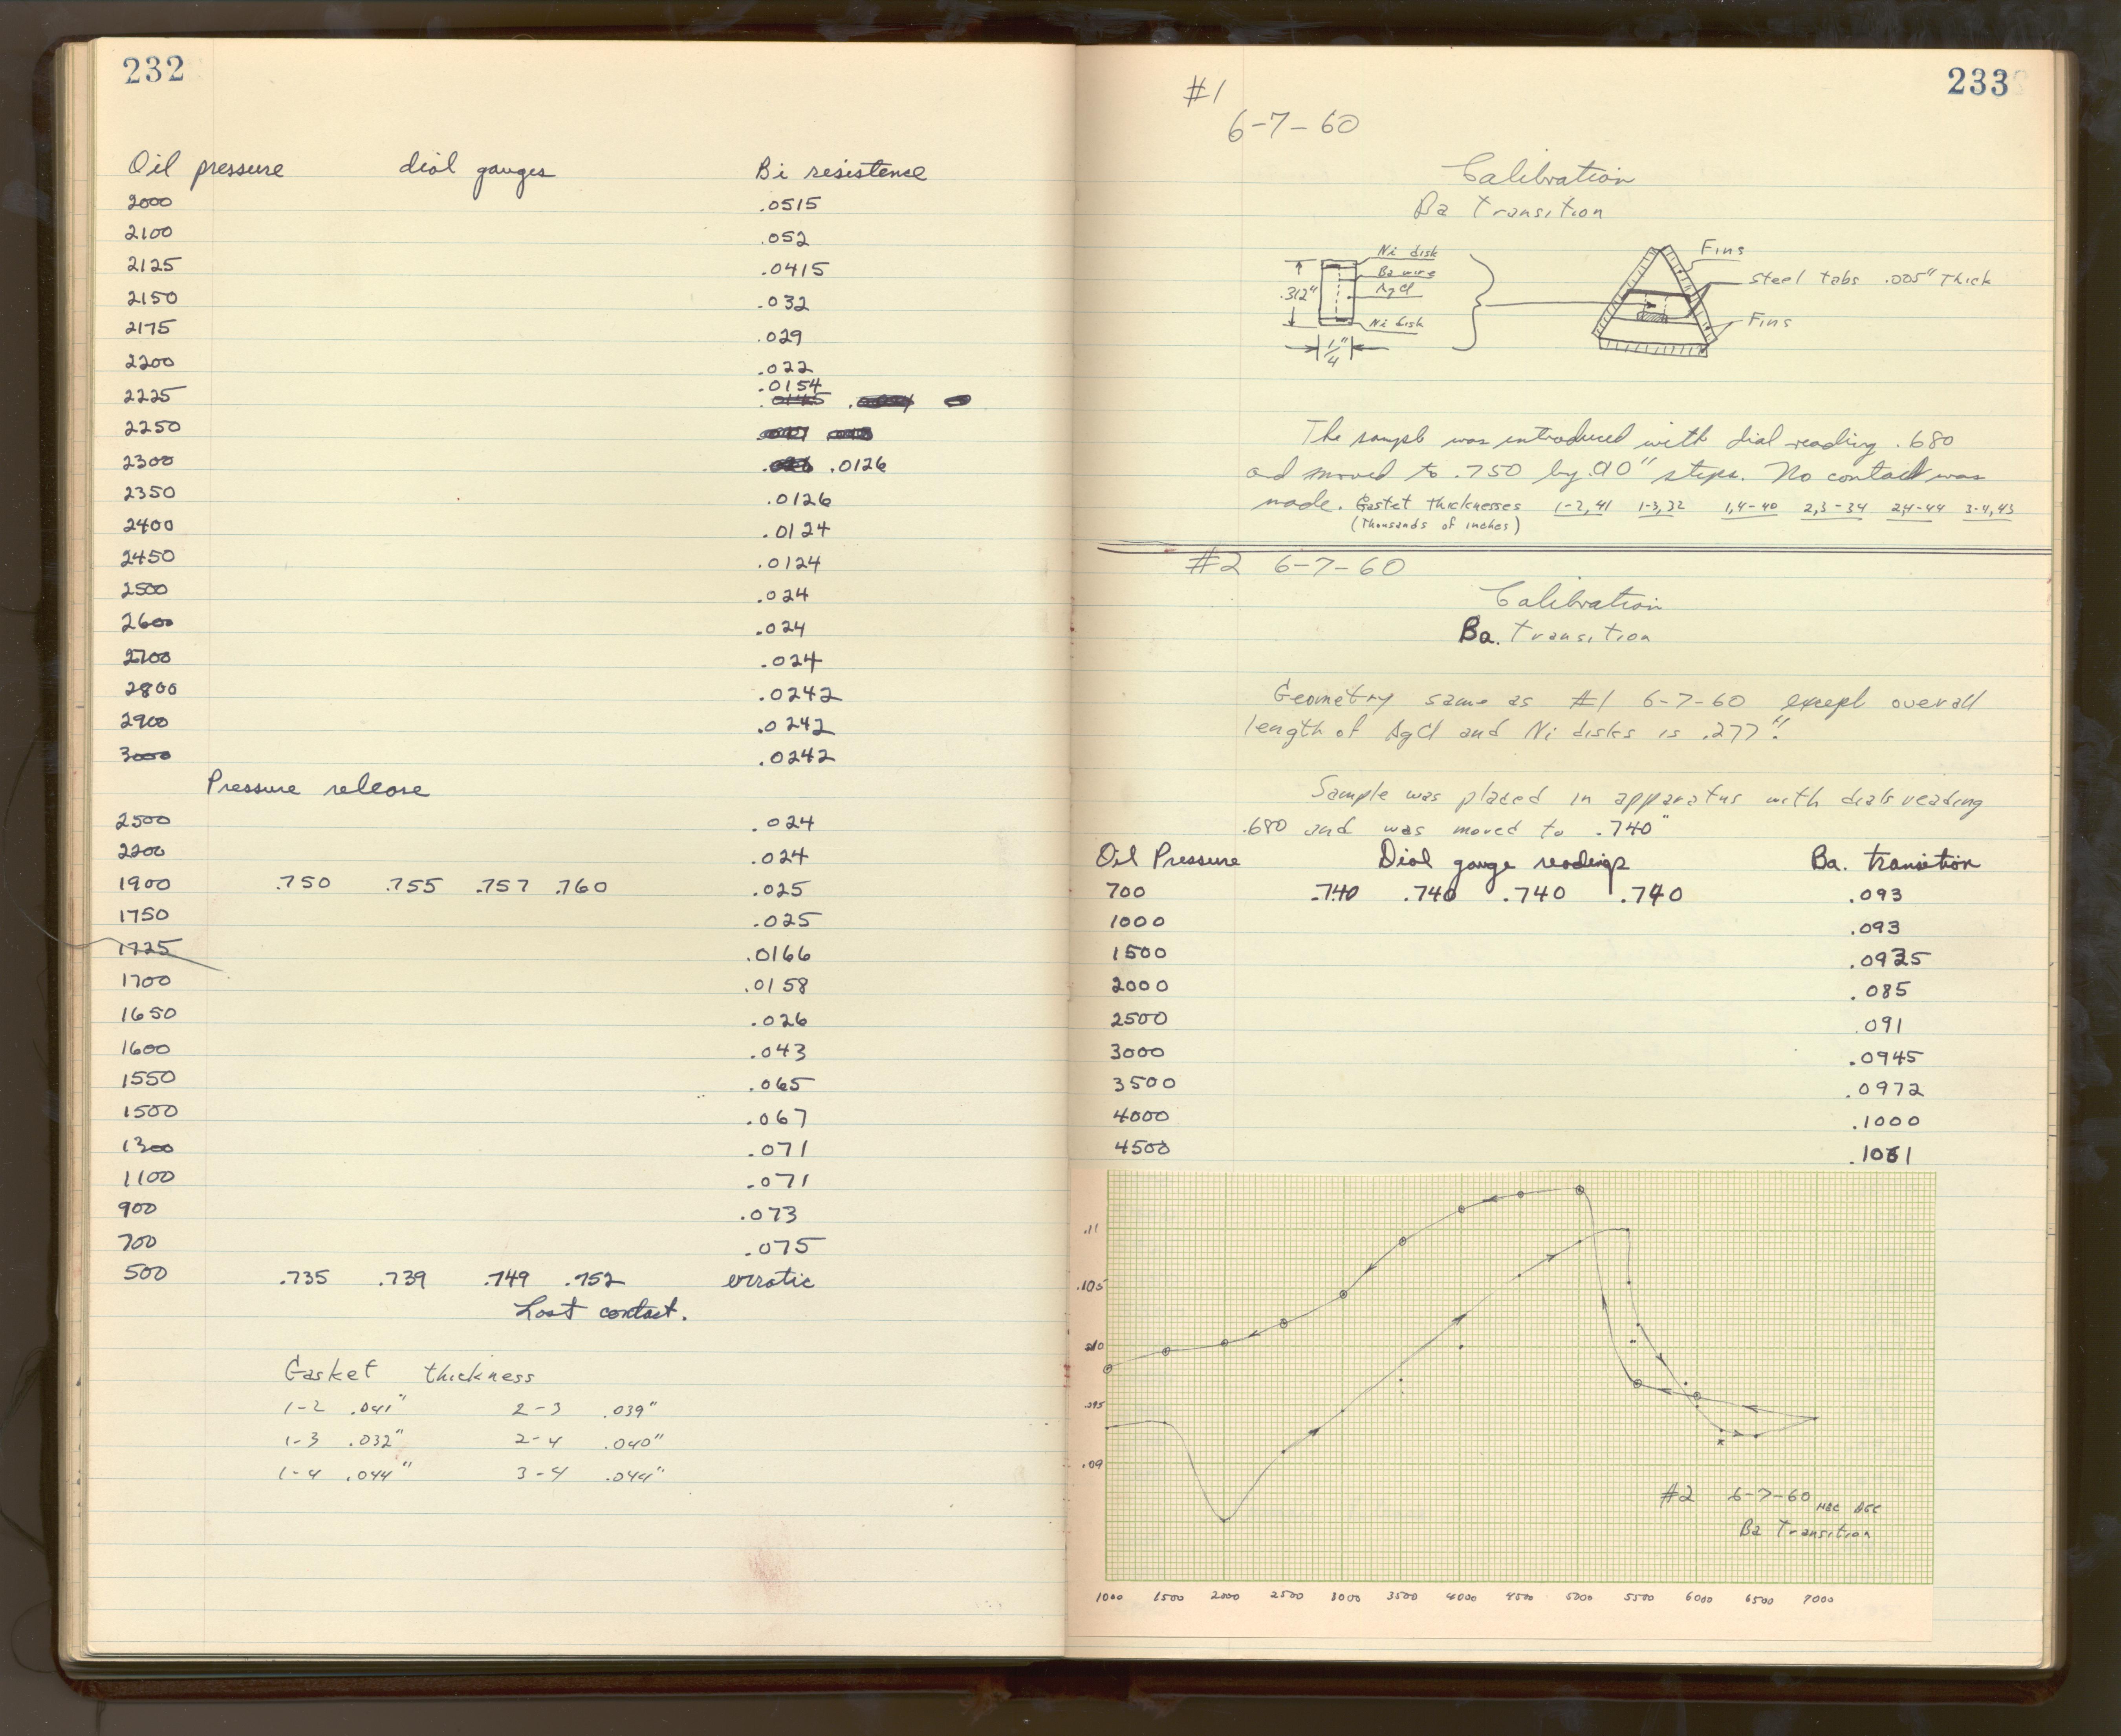 232
Oil pressure dial gauges Bi resistence
2000 .0515
2100 .052
2125 .0415
2150 .032
2175 .029
2200 .022
2225 .0154
2250
2300 .0126
2350 .0126
2400 .0124
2450 .0124
2500 .024
2600 .024
2700 .024
2800 .0242
2900 .0242
3000 .0242
Pressure release
2500 .024
2200 .024
1900 .750 .755 .757 .760 .025
1750 .025
1725 .0166
1700 .0158
1650 .026
1600 .043
1550 .065
1500 .067
1300 .071
1100 .071
900 .073
700 .075
500 .735 .739 .749 .752 erratic
Lost contact.
Gasket thickness
1-2 .041" 2-3 .039"
1-3 .032" 2-4 .040"
1-4 .044" 3-4 .044"
233
#1
6-7-60
Calibration
Ba Transition
Ni disk
Ba wire
AgCl
Ni disk
.312"
1/4"
Fins
Steel tabs .005" Thick
Fins
The sample was introduced with dial reading .680
and moved to .750 by .010" steps. No contact was
made. Gasket thicknesses 1-2, 41 1-3, 32 1,4-40 2,3-34 2,4-44 3-4, 43
(Thousands of inches)
#2 6-7-60
Calibration
Ba. Transition
Geometry same as #1 6-7-60 except overall
length of AgCl and Ni disks is .277".
Sample was placed in apparatus with dials reading
.680 and was moved to .740"
Oil Pressure Dial gauge readings Ba. transition
700 .740 .740 .740 .740 .093
1000 .093
1500 .0935
2000 .085
2500 .091
3000 .0945
3500 .0972
4000 .1000
4500 .1061
.11
.105
.10
.095
.09
#2 6-7-60
Ba Transition
1000 1500 2000 2500 3000 3500 4000 4500 5000 5500 6000 6500 7000